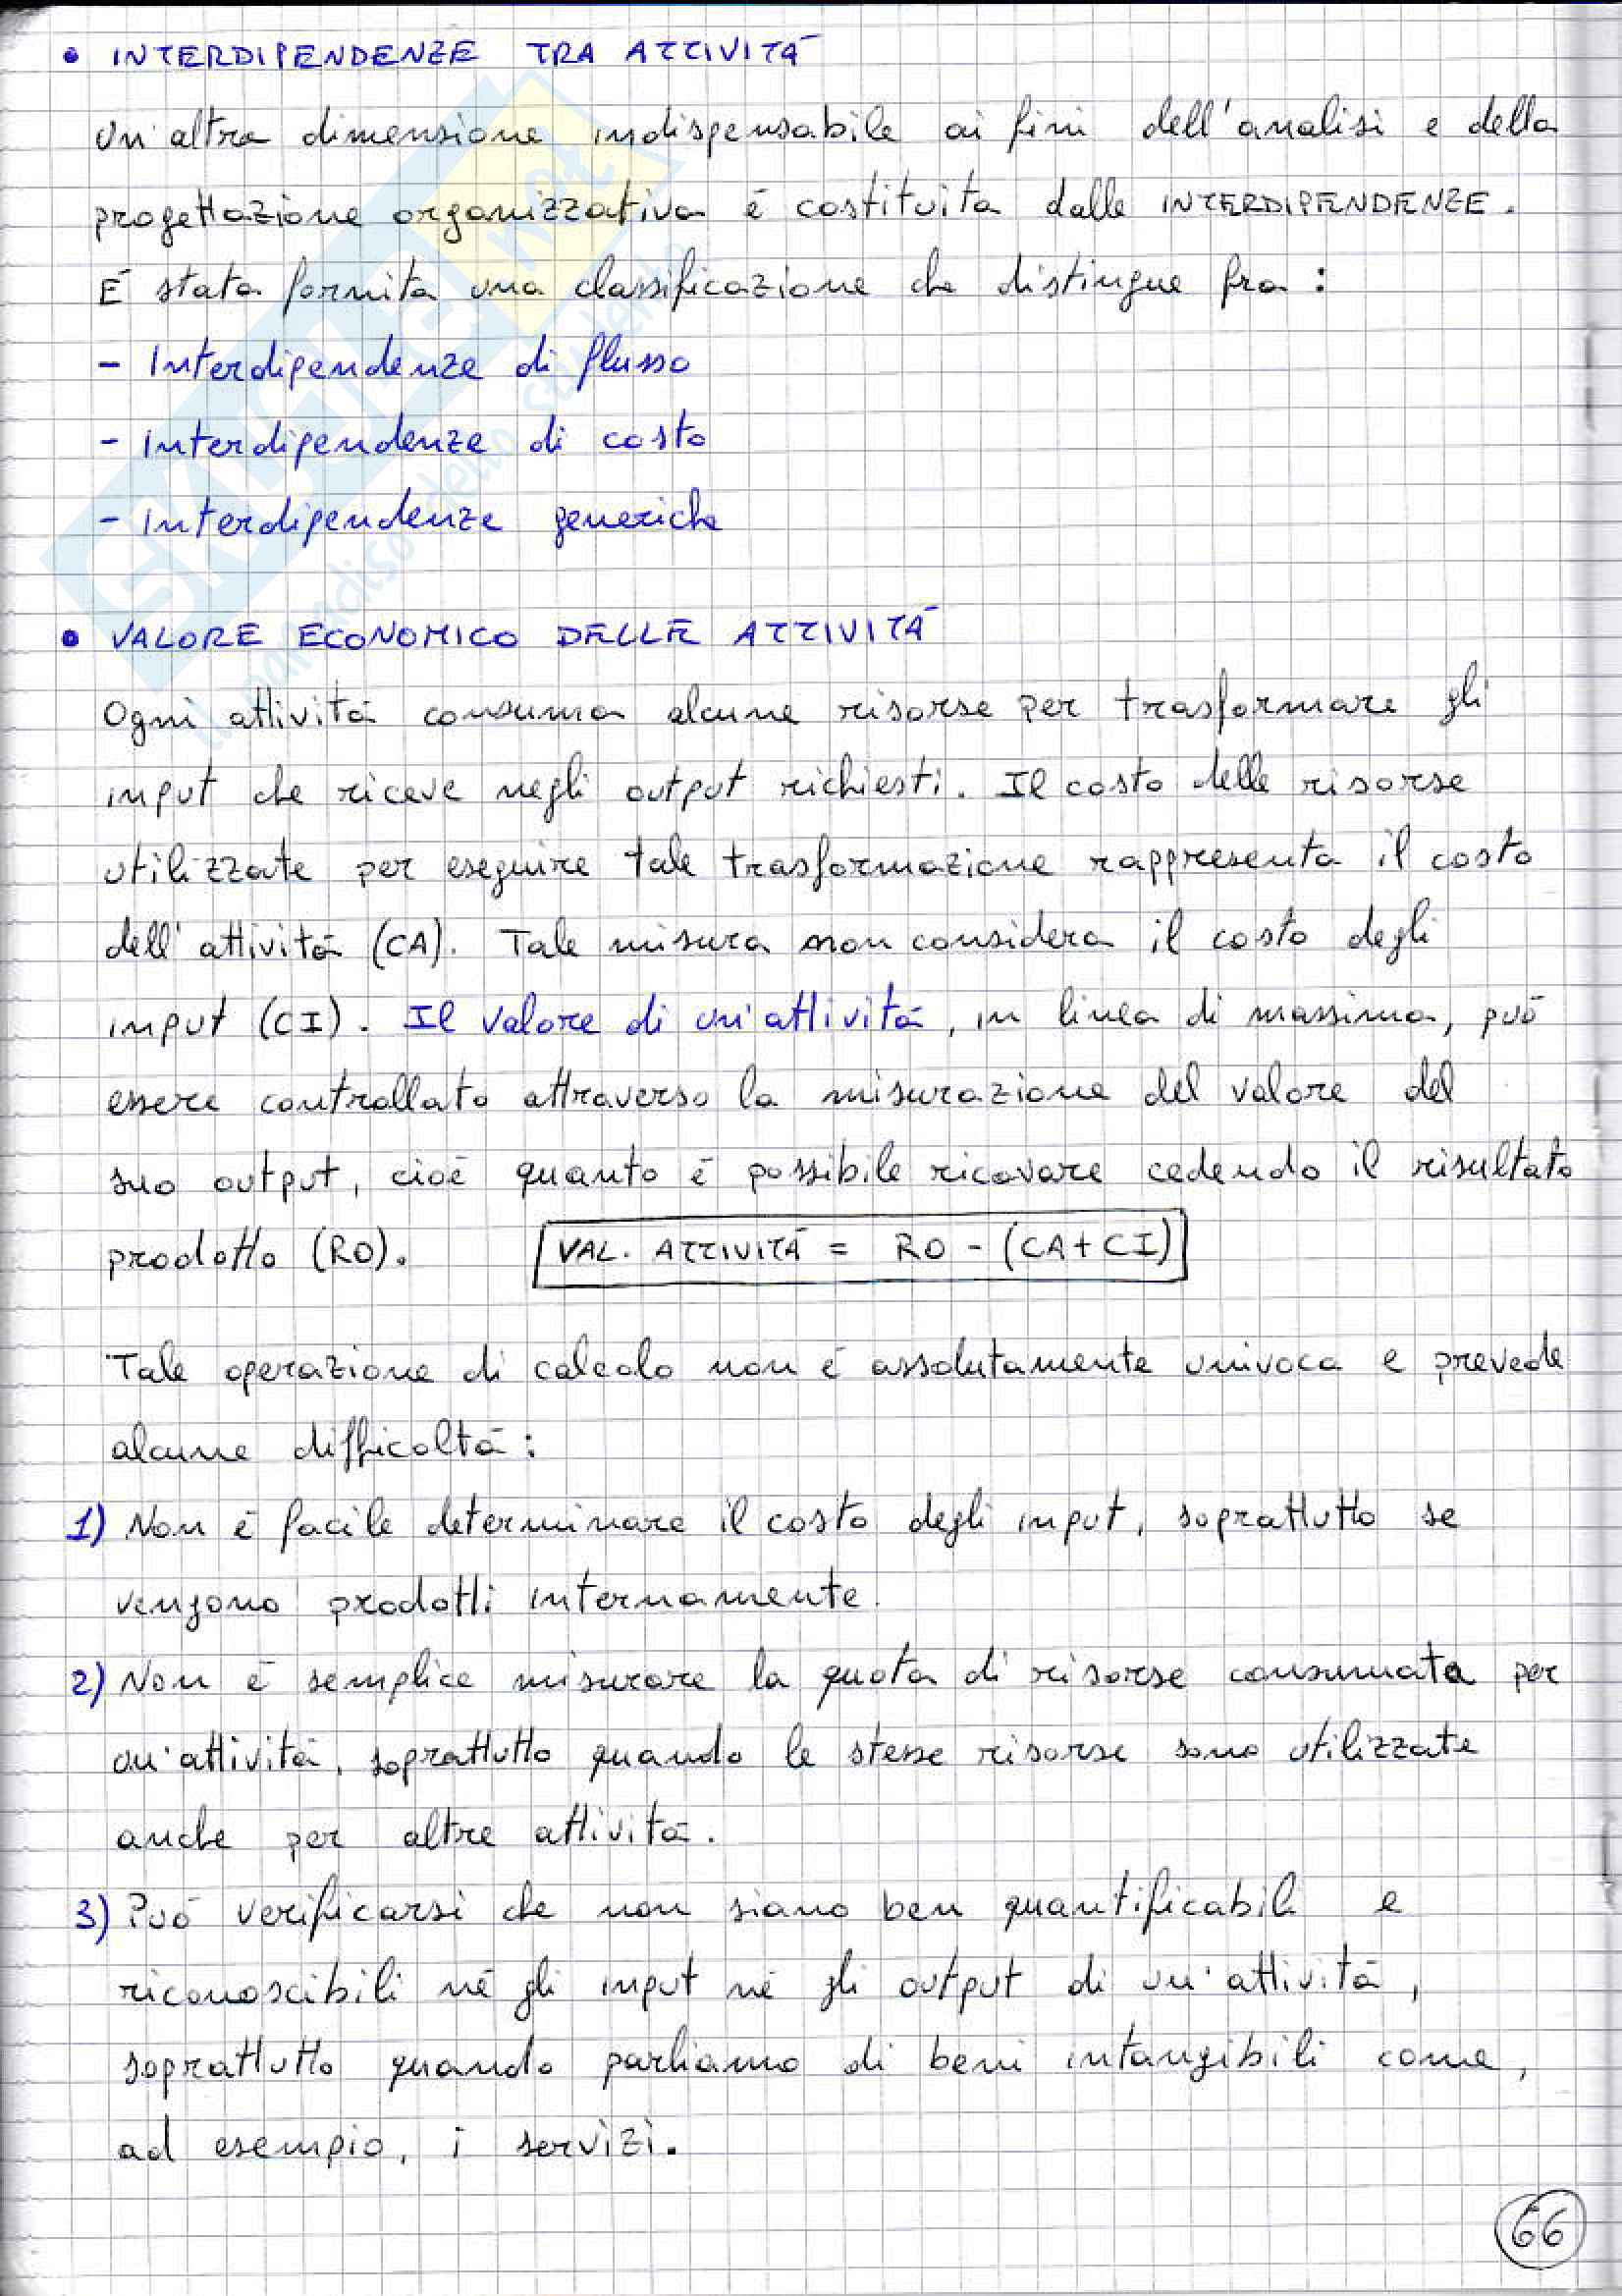 • INTERDIPENDENZE TRA ATTIVITÀ
Un'altra dimensione indispensabile ai fini dell'analisi e della
progettazione organizzativa è costituita dalle INTERDIPENDENZE.
È stata fornita una classificazione che distingue fra:
- Interdipendenze di flusso
- Interdipendenze di costo
- Interdipendenze generiche
• VALORE ECONOMICO DELLE ATTIVITÀ
Ogni attività consuma alcune risorse per trasformare gli
input che riceve negli output richiesti. Il costo delle risorse
utilizzate per eseguire tale trasformazione rappresenta il costo
dell'attività (CA). Tale misura non considera il costo degli
input (CI). Il valore di un'attività, in linea di massima, può
essere controllato attraverso la misurazione del valore del
suo output, cioè quanto è possibile ricavare cedendo il risultato
prodotto (RO). VAL. ATTIVITÀ = RO - (CA+CI)
Tale operazione di calcolo non è assolutamente univoca e prevede
alcune difficoltà:
1) Non è facile determinare il costo degli input, soprattutto se
vengono prodotti internamente.
2) Non è semplice misurare la quota di risorse consumata per
un'attività, soprattutto quando le stesse risorse sono utilizzate
anche per altre attività.
3) Può verificarsi che non siano ben quantificabili e
riconoscibili né gli input né gli output di un'attività,
soprattutto quando parliamo di beni intangibili come,
ad esempio, i servizi.
66
SKUOLA.net
il paradiso dello studente